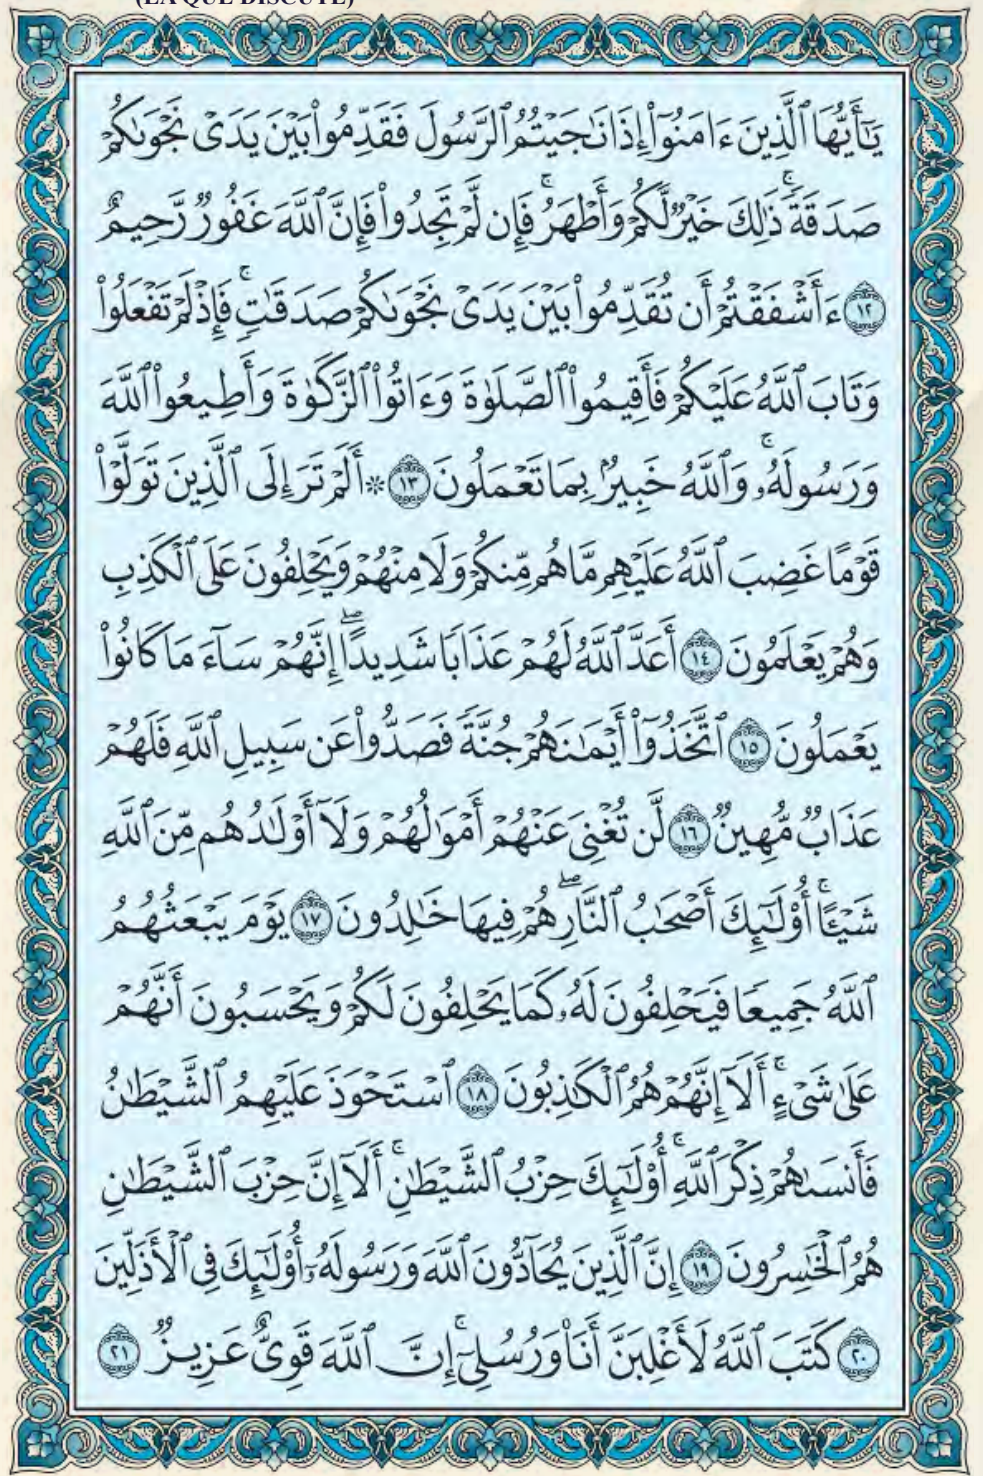 (LA QUE DISCUTE)
يَٰٓأَيُّهَا ٱلَّذِينَ ءَامَنُوٓا۟ إِذَا نَٰجَيْتُمُ ٱلرَّسُولَ فَقَدِّمُوا۟ بَيْنَ يَدَىْ نَجْوَىٰكُمْ
صَدَقَةً ۚ ذَٰلِكَ خَيْرٌ لَّكُمْ وَأَطْهَرُ ۚ فَإِن لَّمْ تَجِدُوا۟ فَإِنَّ ٱللَّهَ غَفُورٌ رَّحِيمٌ
١٢ ءَأَشْفَقْتُمْ أَن تُقَدِّمُوا۟ بَيْنَ يَدَىْ نَجْوَىٰكُمْ صَدَقَٰتٍ ۚ فَإِذْ لَمْ تَفْعَلُوا۟
وَتَابَ ٱللَّهُ عَلَيْكُمْ فَأَقِيمُوا۟ ٱلصَّلَوٰةَ وَءَاتُوا۟ ٱلزَّكَوٰةَ وَأَطِيعُوا۟ ٱللَّهَ
وَرَسُولَهُۥ ۚ وَٱللَّهُ خَبِيرٌۢ بِمَا تَعْمَلُونَ ١٣ ۞ أَلَمْ تَرَ إِلَى ٱلَّذِينَ تَوَلَّوْا۟
قَوْمًا غَضِبَ ٱللَّهُ عَلَيْهِم مَّا هُم مِّنكُمْ وَلَا مِنْهُمْ وَيَحْلِفُونَ عَلَى ٱلْكَذِبِ
وَهُمْ يَعْلَمُونَ ١٤ أَعَدَّ ٱللَّهُ لَهُمْ عَذَابًا شَدِيدًا ۖ إِنَّهُمْ سَآءَ مَا كَانُوا۟
يَعْمَلُونَ ١٥ ٱتَّخَذُوٓا۟ أَيْمَٰنَهُمْ جُنَّةً فَصَدُّوا۟ عَن سَبِيلِ ٱللَّهِ فَلَهُمْ
عَذَابٌ مُّهِينٌ ١٦ لَّن تُغْنِىَ عَنْهُمْ أَمْوَٰلُهُمْ وَلَآ أَوْلَٰدُهُم مِّنَ ٱللَّهِ
شَيْـًٔا ۚ أُو۟لَٰٓئِكَ أَصْحَٰبُ ٱلنَّارِ ۖ هُمْ فِيهَا خَٰلِدُونَ ١٧ يَوْمَ يَبْعَثُهُمُ
ٱللَّهُ جَمِيعًا فَيَحْلِفُونَ لَهُۥ كَمَا يَحْلِفُونَ لَكُمْ وَيَحْسَبُونَ أَنَّهُمْ
عَلَىٰ شَىْءٍ ۚ أَلَآ إِنَّهُمْ هُمُ ٱلْكَٰذِبُونَ ١٨ ٱسْتَحْوَذَ عَلَيْهِمُ ٱلشَّيْطَٰنُ
فَأَنسَىٰهُمْ ذِكْرَ ٱللَّهِ ۚ أُو۟لَٰٓئِكَ حِزْبُ ٱلشَّيْطَٰنِ ۚ أَلَآ إِنَّ حِزْبَ ٱلشَّيْطَٰنِ
هُمُ ٱلْخَٰسِرُونَ ١٩ إِنَّ ٱلَّذِينَ يُحَآدُّونَ ٱللَّهَ وَرَسُولَهُۥٓ أُو۟لَٰٓئِكَ فِى ٱلْأَذَلِّينَ
٢٠ كَتَبَ ٱللَّهُ لَأَغْلِبَنَّ أَنَا۠ وَرُسُلِىٓ ۚ إِنَّ ٱللَّهَ قَوِىٌّ عَزِيزٌ ٢١